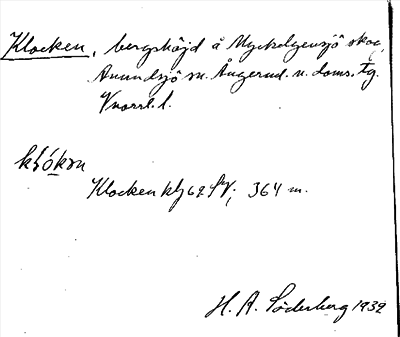 Klocken, bergshöjd å Myckelgensjö skog,
Anundsjö sn. Ångerml. n. doms. tg.
Vnorrl. l.
klόkən
Klocken kbl 62 SV; 364 m.
H. A. Söderberg 1932